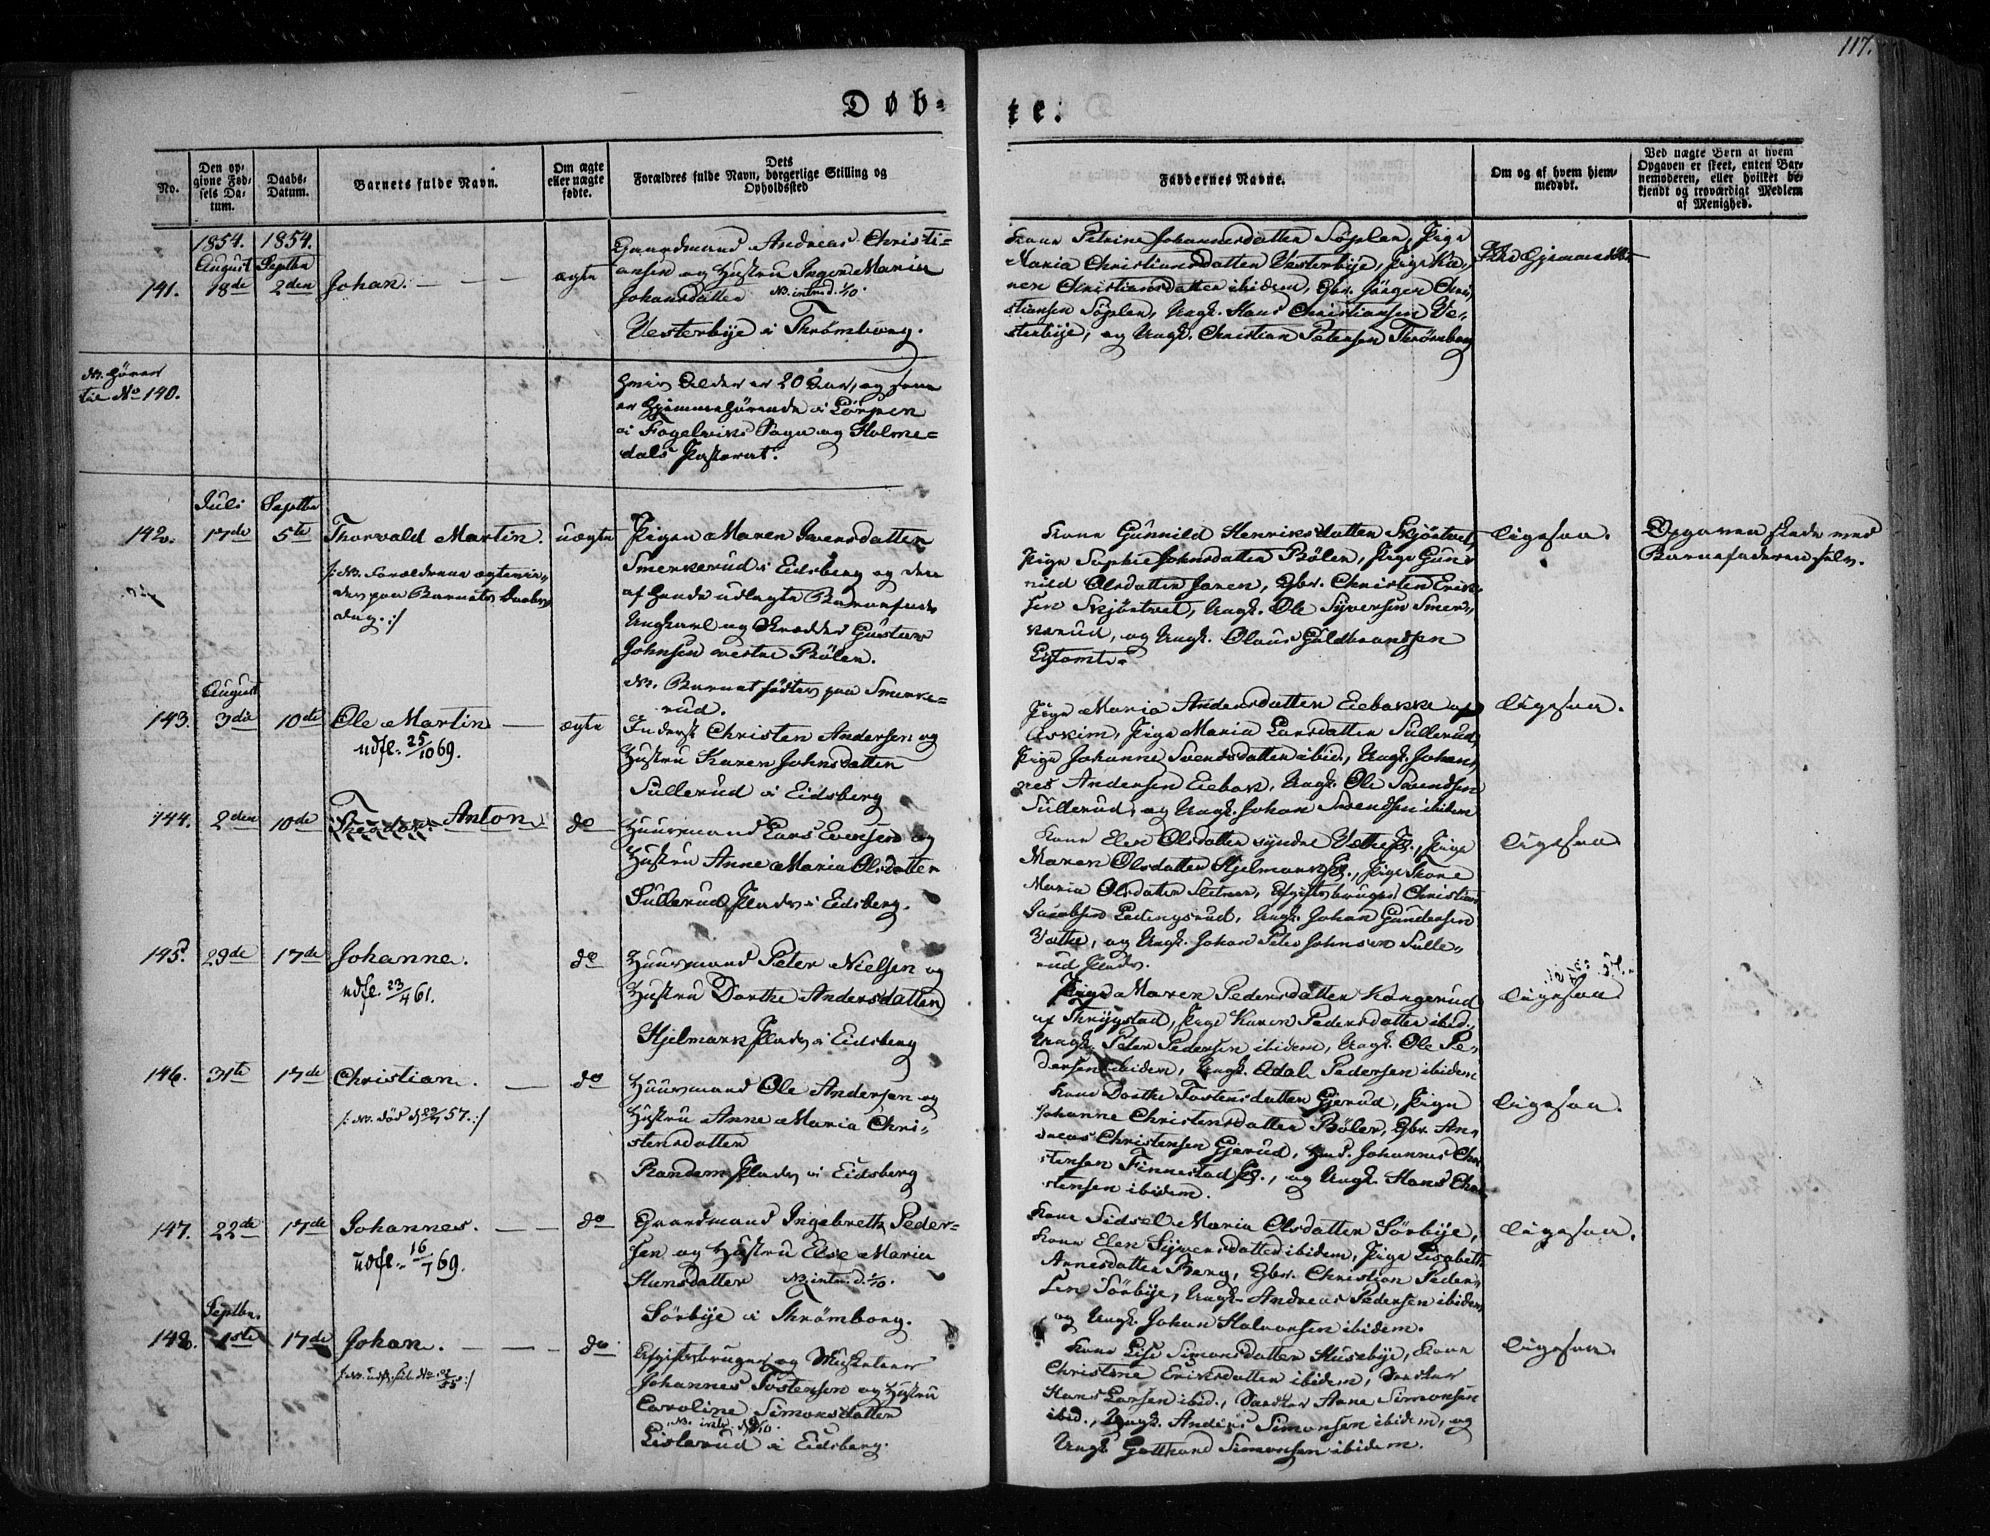 117.
Døb-
te.
No.
Den op-
givne Fød-
sels Da-
tum.
Daabs-
Datum.
Barnets fulde Navn.
Om ægte
eller uægte
fødte.
Dets
Forældres fulde Navn, borgerlige Stilling og
Opholdssted
Faddernes Navne.
Om og af hvem hjem-
medøbt.
Ved uægte Børn at hvem
Opgaven er skeet, enten Bar-
nemoderen, eller hvilket be-
kjendt og troværdigt Medlem
af Menighed.
1854. 1854.
August Septbr
141. 18de 2den Johan. ægte
Gaardmand Andreas Christi-
ansen og Hustru Inger Maria
Johansdatter NB. introd. 1/10.
Vesterbye i Thrømborg.
Kone Petrine Johannesdatter Søplen, Pige
Maria Christiansdatter Vesterbye, Pige Ka-
ren Christiansdatter ibidem, Gbr. Jörgen Chri-
stiansen Søplen, Ungk. Hans Christiansen Ve-
sterbye, og Ungk. Christian Petersen Thrømborg
Ikke Hjemmedøbt
NB. hörer
til No 140.
hvis Alder er 20 Aar, og som
er Hjemmehörende i
i Fogelviks Sogn og Holme-
dals Pastorat.
Juli Septbr
142. 17de 5te Thorvald Martin. uægte
/: NB. Forældrene ægtevie-
des paa Barnets Daabs-
dag. :/
Pigen Maren Iversdatter
Smerkerud i Eidsberg og den
af hende udlagte Barnefader
Ungkarl og Skrædder Gustav
Johnsen vestre Bölen.
NB. Barnet födtes paa Smerke-
rud.
Kone Gunnild Henriksdatter Skjörtvet,
Pige Sophie Johnsdatter Bölen, Pige Gun-
nild Olsdatter Jaren, Gbr. Christen Erik-
sen Skjörtvet, Ungk. Ole Syversen Smer-
kerud, og Ungk. Olaus Guldbrandsen
Eistomte.
Ligesaa.
Opgaven skede med
Barnefaderen selv.
August
143. 3die 10de Ole Martin ægte
udfl. 25/10 69.
Inderst Christen Andersen og
Hustru Karen Johnsdatter
Sullerud i Eidsberg
Pige Maria Andersdatter Eiebakke af
Askim, Pige Maria Larsdatter Sullerud,
Pige Johanne Svendsdatter ibid., Ungk. Johan-
nes Andersen Eiebak, Ungk. Ole Svendsen
Sullerud, og Ungk. Johan Svendsen ibidem
Ligesaa.
144. 2den 10de Theodor Anton do
Huusmand Lars Evensen og
Hustru Anne Maria Olsdatter
Sullerud Plads i Eidsberg.
Kone Elen Olsdatter syndre Vethe Pl., Pige
Maren Olsdatter Hjelmark Pl., Pige Thone
Maria Olsdatter Sletner, Afgiftsbruger Christian
Jacobsen Ledingsrud, Ungk. Johan Gundersen
Vethe, og Ungk. Johan Peter Johnsen Sulle-
rud Plads.
Ligesaa
145. 29de 17de Johanne. do
udfl. 23/4 61.
Huusmand Peter Nielsen og
Hustru Dorthe Andersdatter
Hjelmark Plads i Eidsberg
Pige Maren Pedersdatter Kongerud
af Thrygstad, Pige Karen Pedersdatter ibid.,
Ungk. Peter Pedersen ibidem, Ungk. Ole Pe-
dersen ibidem, Ungk. Adal Pedersen ibidem
Ligesaa
146. 31te 17de Christian. do
/: NB. död d. 22/7 57. :/
Huusmand Ole Andersen og
Hustru Anne Maria Chri-
stensdatter
Randem Plads i Eidsberg
Kone Dorthe Tostensdatter Gjerud, Pige
Johanne Christensdatter Böler, Gbr. An-
dreas Christensen Gjerud, Hmd. Johannes Chri-
stensen Finnestad Pl., og Ungk. Hans Chri-
stensen ibidem.
Ligesaa.
147. 22de 17de Johannes. do
udfl. 16/1 69.
Gaardmand Ingebreth Peder-
sen og Hustru Else Maria
Hansdatter NB. intr. d. 1/10.
Sörbye i Thrømborg.
Kone Sidsel Maria Olsdatter Sörbye,
Kone Elen Syversdatter ibidem, Pige Lisabeth
Arnesdatter Berg, Gbr. Christian Peder-
sen Sörbye, Ungk. Andreas Pedersen ibidem
og Ungk. Johan Halvorsen ibidem.
Ligesaa.
Septbr.
148. 1ste 17de Johan. do
Afgiftsbruger og Musketeer
Johannes Tostensen og Hustru
Caroline Simonsdatter
Lislerud i Eidsberg.
Kone Lise Simonsdatter Husebye, Kone
Christine Eriksdatter ibidem,
Hans Larsen ibid., Anne Simonsen
ibid., Ungk. Anders Simonsen ibidem, og
Ungk. Gotthard Simonsen ibidem.
Ligesaa.